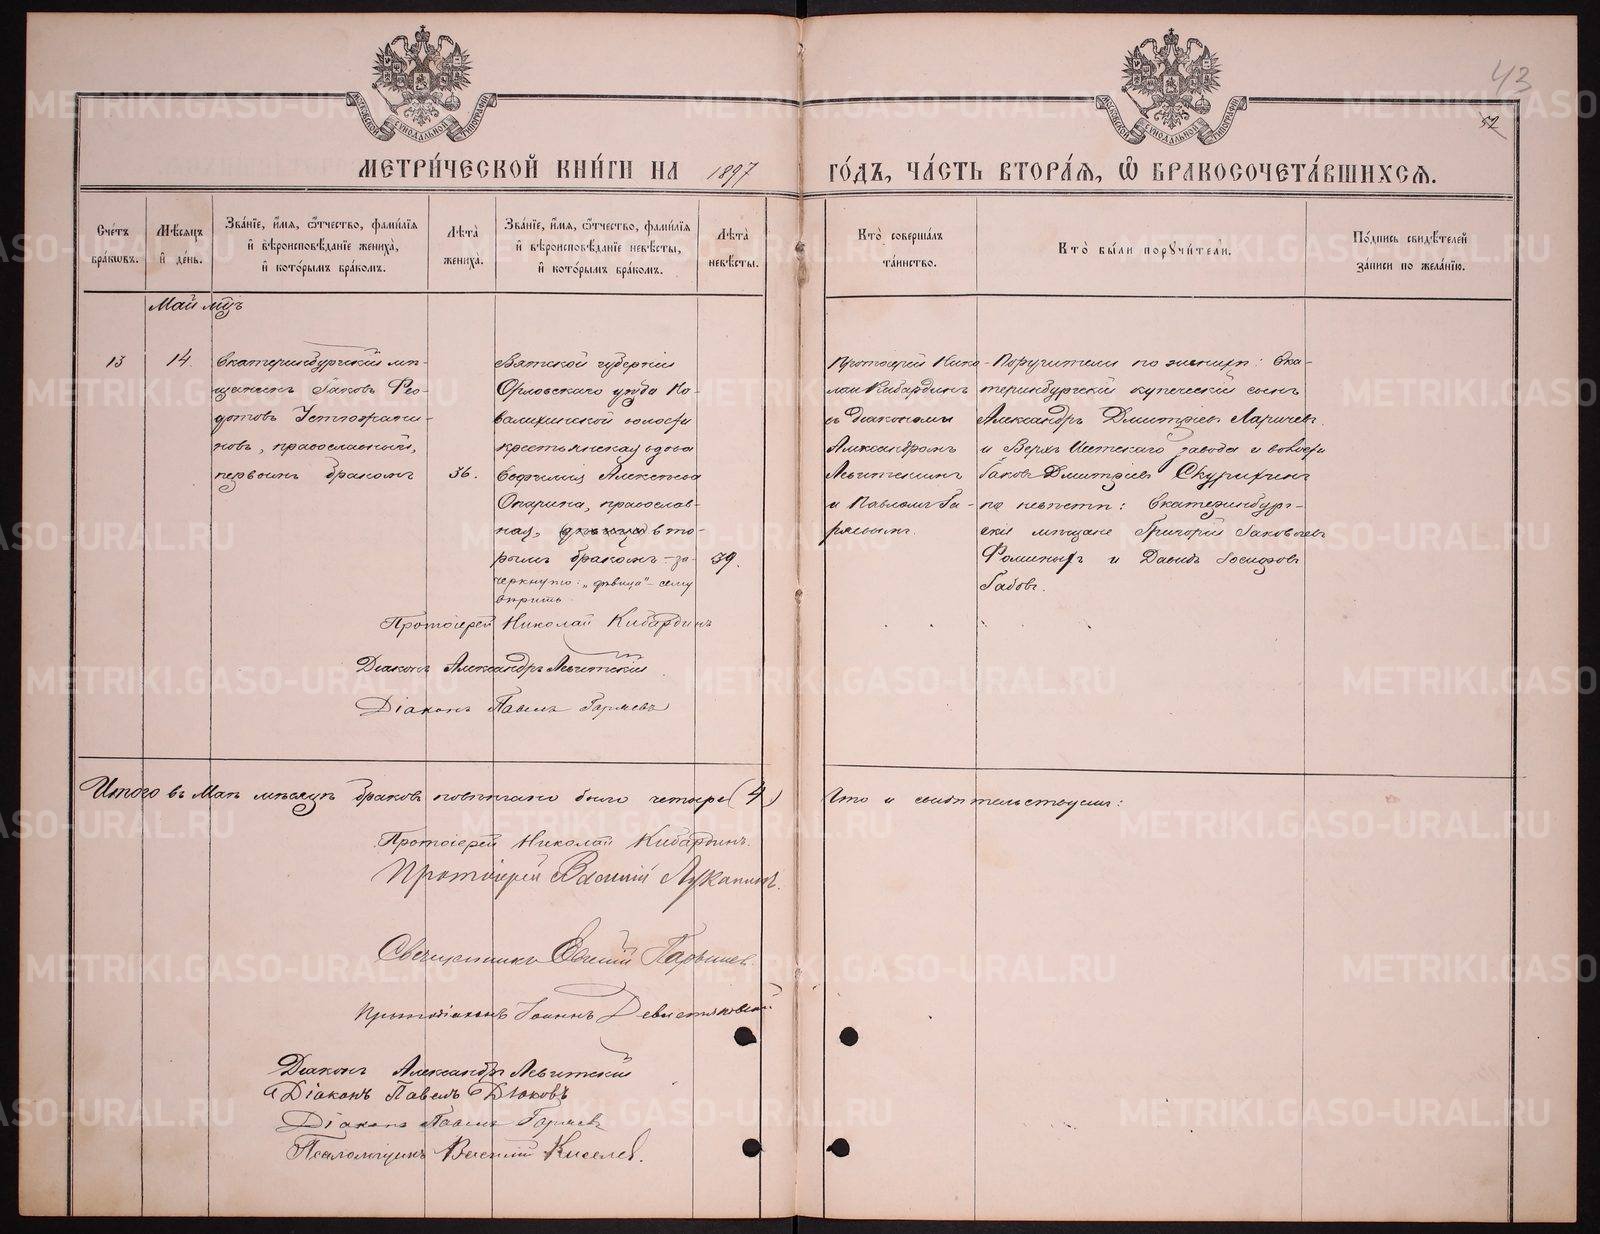 43
52
МЕТРИ́ЧЕСКОЙ КНИ́ГИ НА 1897 ГО́ДЪ, ЧА́СТЬ ВТОРА́Я, Ѡ҆ БРАКОСОЧЕТА́ВШИХСѦ.
Сче́тъ бра́кѡвъ.
Мѣ́сяцъ и҆ де́нь.
Зва́нїе, и҆́мѧ, ѻ҆́тчество, фами́лїѧ и҆ вѣроисповѣ́данїе жениха̀, и҆ кото́рымъ бра́комъ.
Лѣта̀ жениха̀.
Зва́нїе, и҆́мѧ, ѻ҆́тчество, фами́лїѧ и҆ вѣроисповѣ́данїе невѣ́сты, и҆ кото́рымъ бра́комъ.
Лѣта̀ невѣ́сты.
Кто̀ соверша́лъ та́инство.
Кто̀ бы́ли порꙋчи́тели.
По́дпись свидѣ́телей за́писи по жела́нїю.
Май мцъ
13
14.
Екатеринбургскій мѣ-
щанинъ Іаковъ Ѳе-
дотовъ
новъ, православный,
первымъ бракомъ
36.
Вятской губерніи
Орловскаго уѣзда Ко-
валихинской волости
крестьянская вдова
Евфимія Алексѣева
Опарина, православ-
ная, дѣвица вто-
рымъ бракомъ - за-
черкнуто: „дѣвица" - сему
вѣрить.
39.
Протоіерей Нико-
лай Кибардинъ
съ діаконами
Александромъ
Левитскимъ
и Павломъ Га-
ряевымъ.
Поручители по женихѣ: Ека-
теринбургскій купеческій сынъ
Александръ Дмитріевъ Ларичевъ
и Верхъ Исетскаго завода и волости
Іаковъ Дмитріевъ Скурихинъ
по невѣстѣ: Екатеринбург-
скіе мѣщане Григорій Іаковлевъ
Фоминыхъ и Давидъ Іосифовъ
Габовъ.
Протоіерей Николай Кибардинъ
Діаконъ Александръ Левитскій
Діаконъ Павелъ Гаряевъ
Итого въ Маѣ мѣсяцѣ браковъ повѣнчано было четыре (4)
Что и свидѣтельствуемъ:
Протоіерей Николай Кибардинъ.
Протоіерей Василій Луканинъ.
Священникъ Евгеній
Протодіаконъ Іоаннъ
Діаконъ Александръ Левитскій
Діаконъ Павелъ Дюковъ
Діаконъ Павелъ Гаряевъ
Псаломщикъ Василій Киселевъ.
METRIKI.GASO-URAL.RU